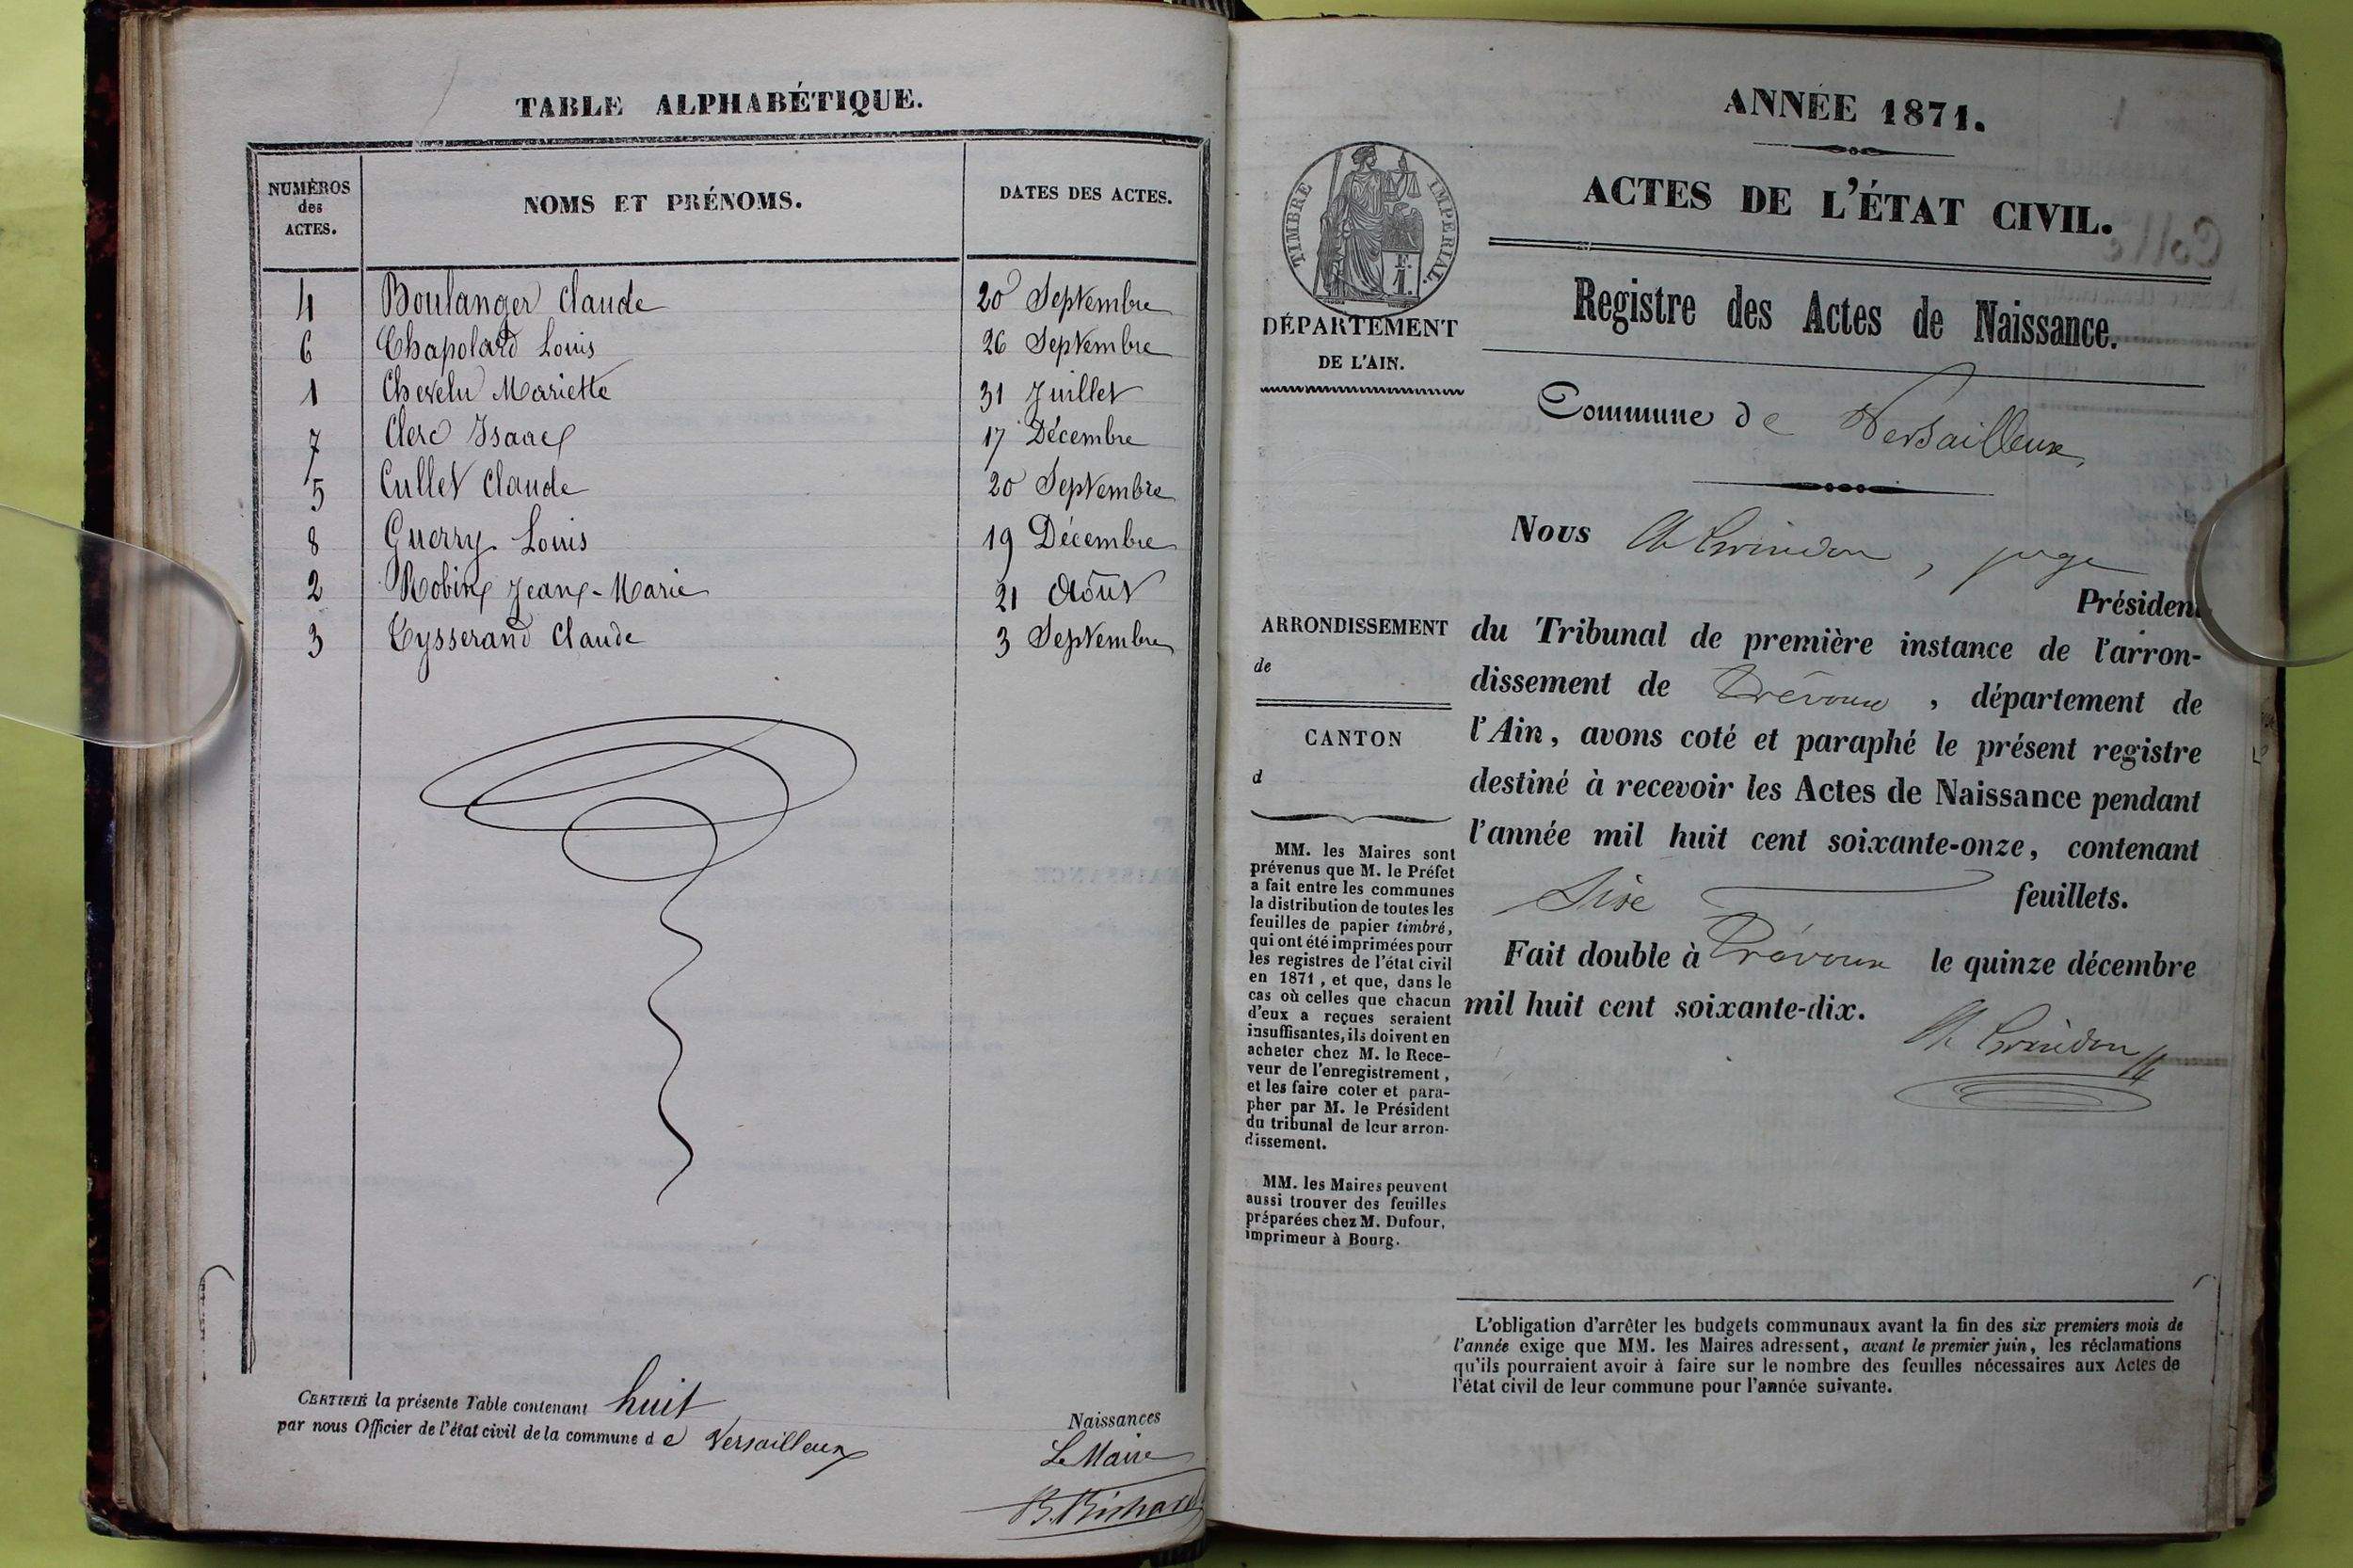 TABLE ALPHABÉTIQUE.
NUMÉROS
des
ACTES.
NOMS ET PRÉNOMS.
DATES DES ACTES.
4 Boulanger Claude 20 Septembre
6 Chapolard Louis 26 Septembre
1 Chevelu Mariette 31 Juillet
7 Clerc Isaac 17 Décembre
5 Cullet Claude 20 Septembre
8 Guerry Louis 19 Décembre
2 Robin Jean-Marie 21 Août
3 Tysserand Claude 3 Septembre
CERTIFIÉ la présente Table contenant huit Naissances
par nous Officier de l'état civil de la commune de Versailleux
Le Maire
ANNÉE 1871.
ACTES DE L'ÉTAT CIVIL.
TIMBRE IMPÉRIAL.
DÉPARTEMENT
DE L'AIN.
Registre des Actes de Naissance.
Commune de Versailleux
Nous , juge
Président
ARRONDISSEMENT
de
CANTON
d
du Tribunal de première instance de l'arron-
dissement de Trévoux , département de
l'Ain, avons coté et paraphé le présent registre
destiné à recevoir les Actes de Naissance pendant
l'année mil huit cent soixante-onze, contenant
feuillets.
Fait double à Trévoux le quinze décembre
mil huit cent soixante-dix.
MM. les Maires sont
prévenus que M. le Préfet
a fait entre les communes
la distribution de toutes les
feuilles de papier timbré,
qui ont été imprimées pour
les registres de l'état civil
en 1871, et que, dans le
cas où celles que chacun
d'eux a reçues seraient
insuffisantes, ils doivent en
acheter chez M. le Rece-
veur de l'enregistrement,
et les faire coter et para-
pher par M. le Président
du tribunal de leur arron-
dissement.
MM. les Maires peuvent
aussi trouver des feuilles
préparées chez M. Dufour,
imprimeur à Bourg.
L'obligation d'arrêter les budgets communaux avant la fin des six premiers mois de
l'année exige que MM. les Maires adressent, avant le premier juin, les réclamations
qu'ils pourraient avoir à faire sur le nombre des feuilles nécessaires aux Actes de
l'état civil de leur commune pour l'année suivante.